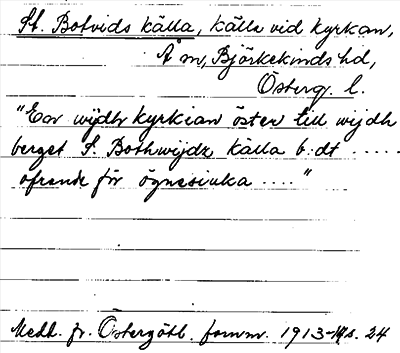 St. Botvids källa, källa vid kyrkan,
Å sn, Björkekinds hd,
Österg. l.
"Een wijdh kyrkian öster till wijdh
berget S. Bothwijdz källa b: dt .....
ofrende för ögnesiuka ...."
Medd. fr. Östergötl. fornm. 1913-14, s. 24